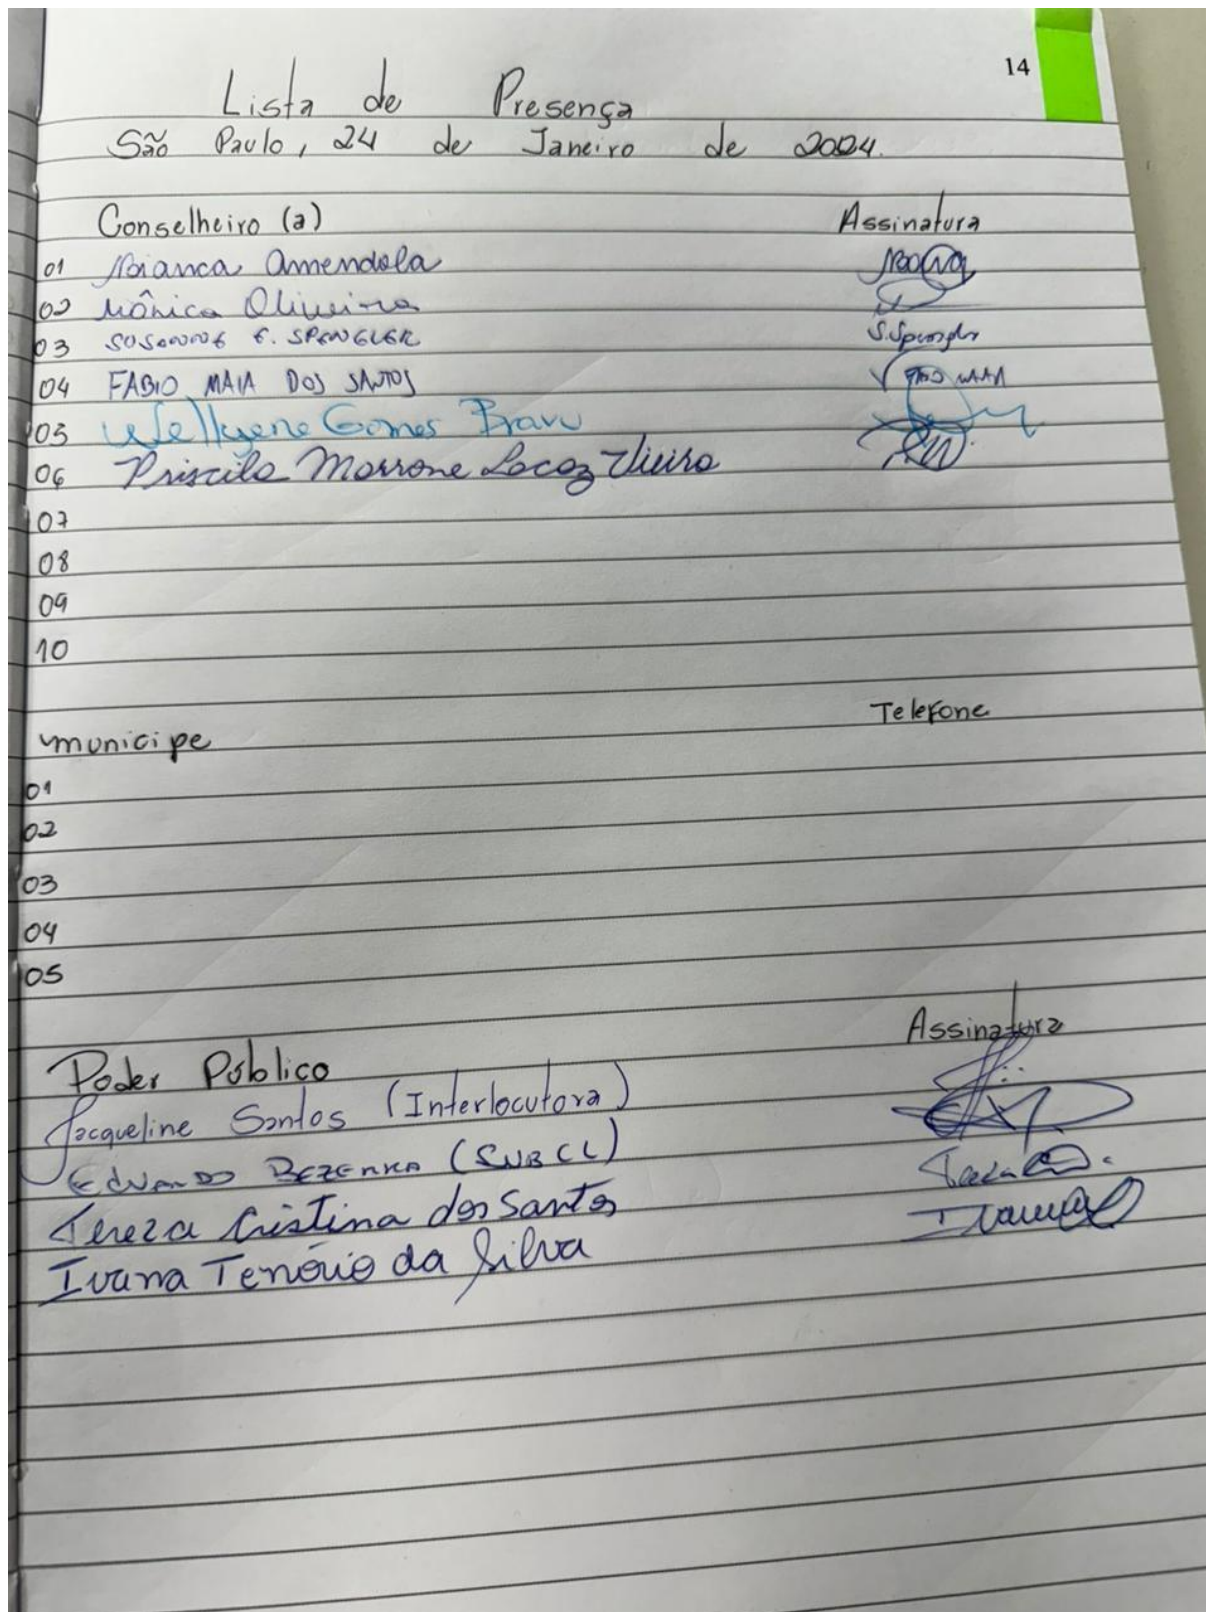 14
Lista de Presença
São Paulo, 24 de Janeiro de 2024.
Conselheiro (a) Assinatura
01 Bianca Amendola
02 Mônica Oliveira
03 SUSANNE E. SPENGLER S.Spengler
04 FABIO MAIA DOS SANTOS
05 Wellyene Gomes Bravo
06 Priscila Marrone Lacaz Vieira
07
08
09
10
municipe Telefone
01
02
03
04
05
Poder Público Assinatura
Jacqueline Santos (Interlocutora)
EDUARDO BEZERRA (SUB CL)
Tereza Cristina dos Santos
Ivana Tenório da Silva